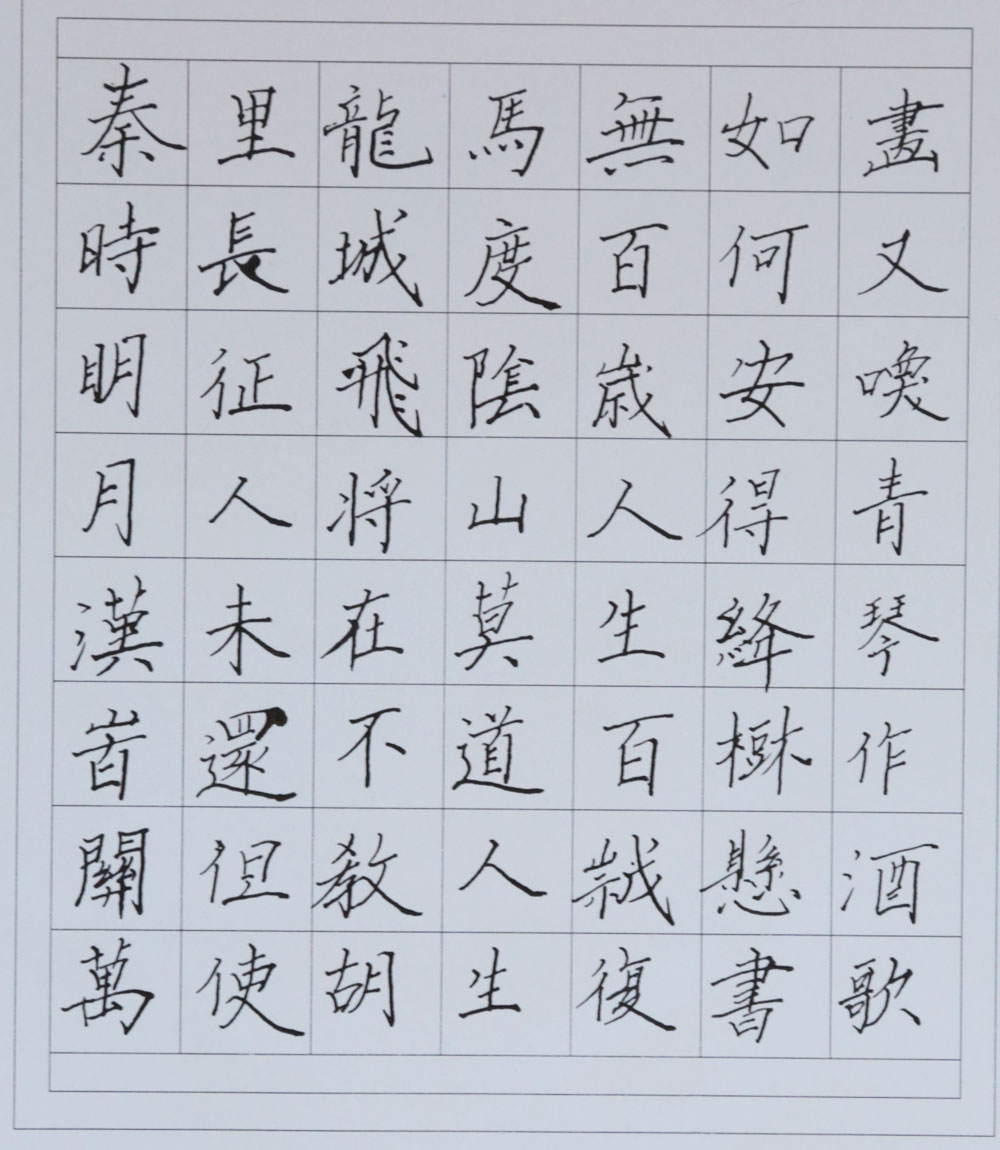 秦時明月漢峕關萬
里長征人未還但使
龍城飛将在不教胡
馬度陰山莫道人生
無百歲人生百歲復
如何安得絳樹懸書
畫又喚青琴作酒歌